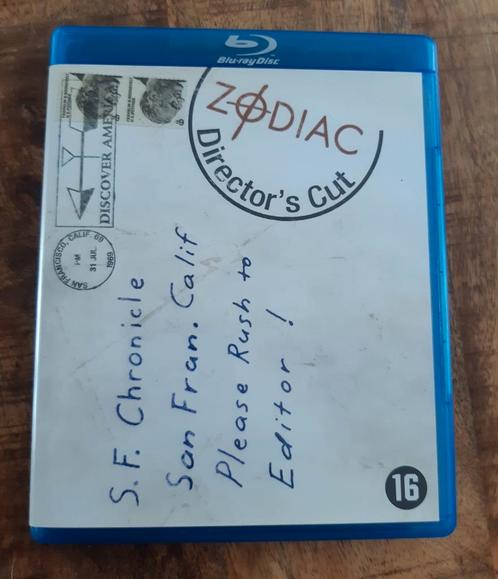 Blu-ray Disc
ZODIAC
Director's Cut
DISCOVER AMERICA
SAN FRANCISCO, CALIF. 69
PM
31 JUL
1969
S.F. Chronicle
San Fran. Calif
Please Rush to
Editor!
16